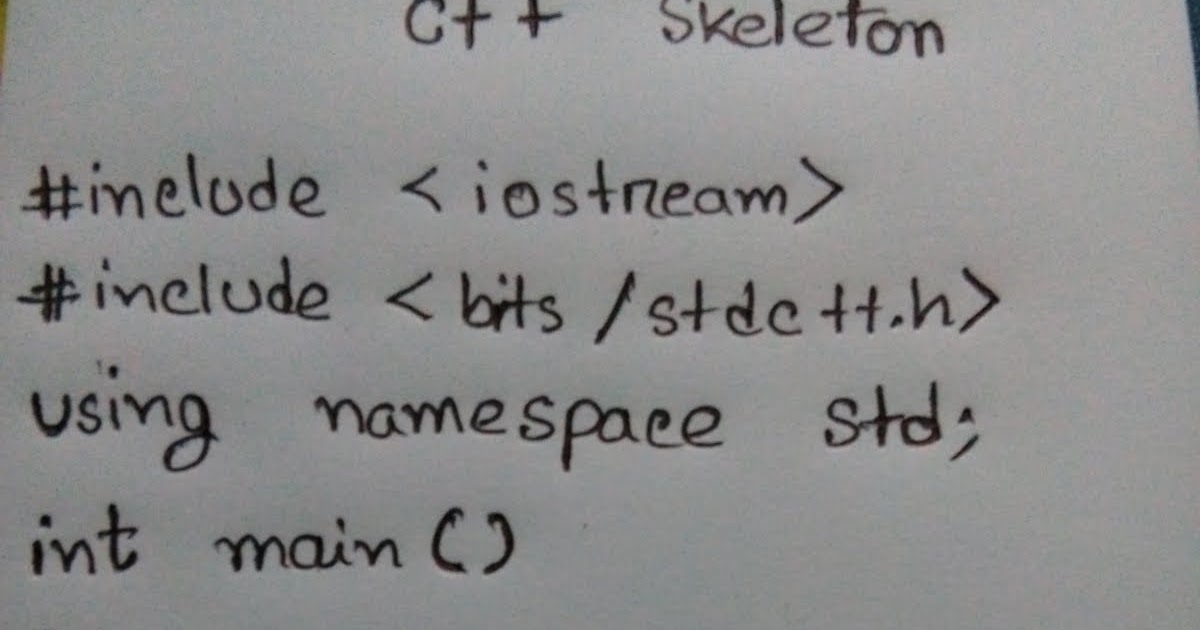 C++ Skeleton
#include <iostream>
#include <bits/stdc++.h>
using namespace std;
int main()